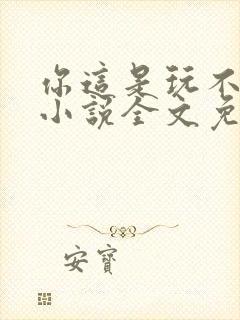 你這是玩不
小說全文免
安寶